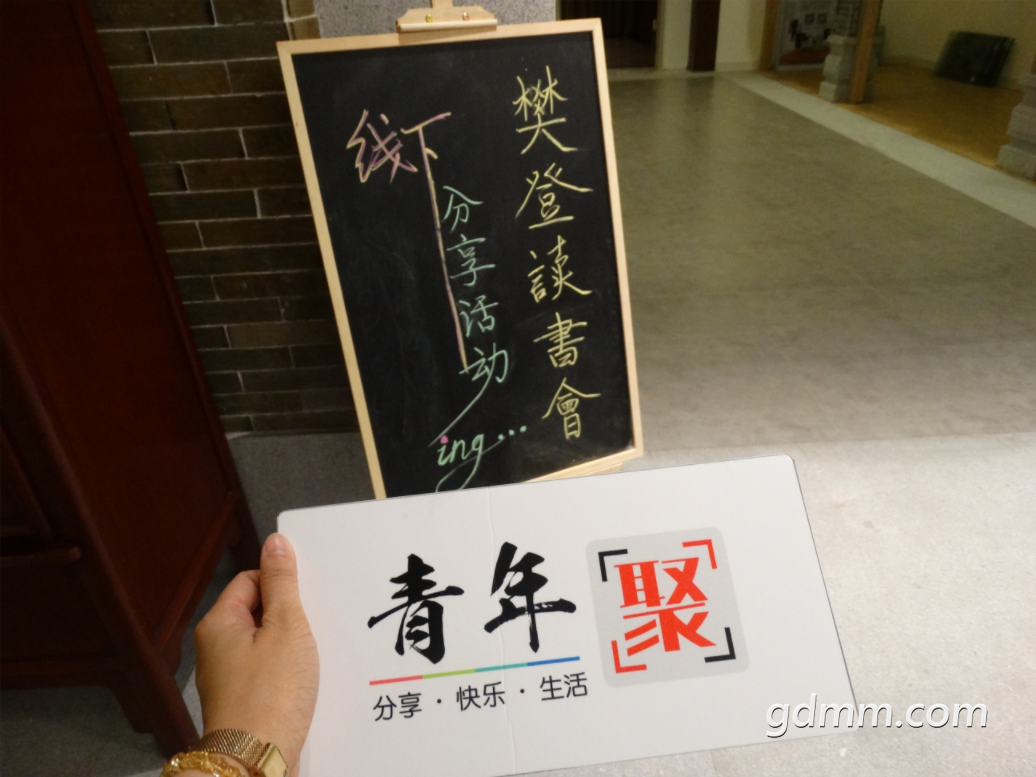 樊登讀書會
线下
分享活动
ing...
青年聚
分享·快乐·生活
gdmm.com